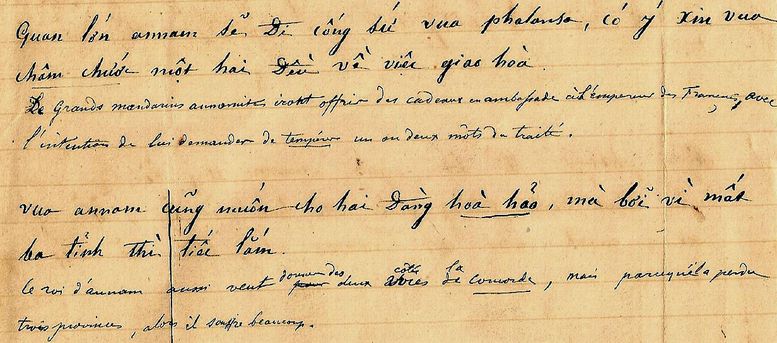 Quan lớn annam sẽ đi cống sứ vua phalansa, có ý xin vua
châm chước một hai đều về việc giao hoà.
De Grands mandarins annamites iront offrir des cadeaux en ambassade à l'Empereur des Français, avec
l'intention de lui demander de tempérer un ou deux mots du traité.
vua annam cũng muốn cho hai đàng hoà hảo, mà bởi vì mất
ba tỉnh thì tiếc lắm.
le roi d'annam aussi veut donner des deux côtés la concorde, mais parcequ'il a perdu
trois provinces, alors il souffre beaucoup.